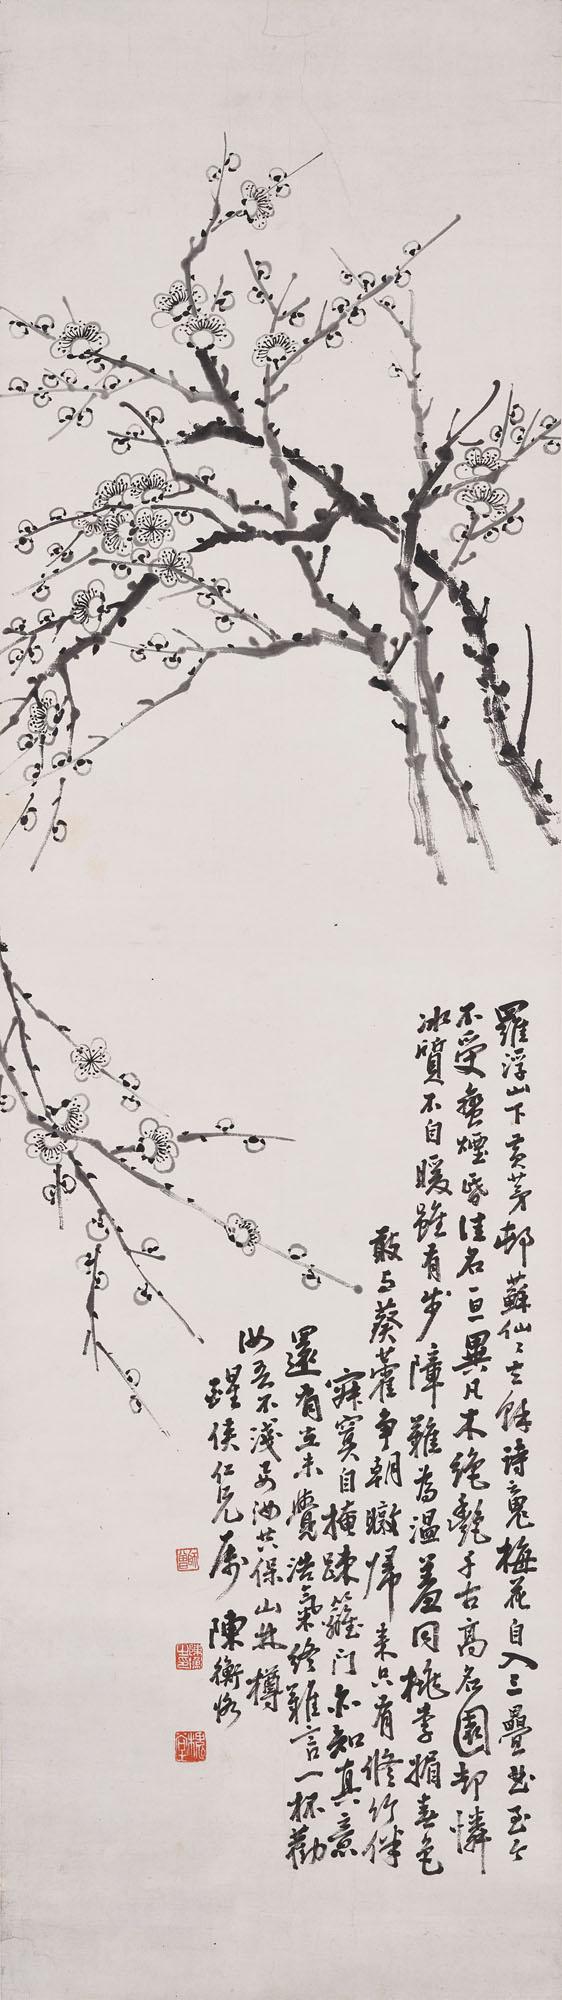 羅浮山下黃茅邨蘇仙〻去餘詩魂梅花自入三疊曲至今
不受蠻煙昏佳名一旦異凡木絕艷千古高名園却憐
冰質不自暖雖有步障難為溫羞同桃李媚春色
敢与葵藿爭朝暾歸來只有脩竹伴
寂寞自掩疎籬門亦知真意
還有在未覺浩氣終難言一杯勸
汝吾不淺要汝共保山林樽
醒俠仁兄屬 陳衡恪
師曾
槐堂